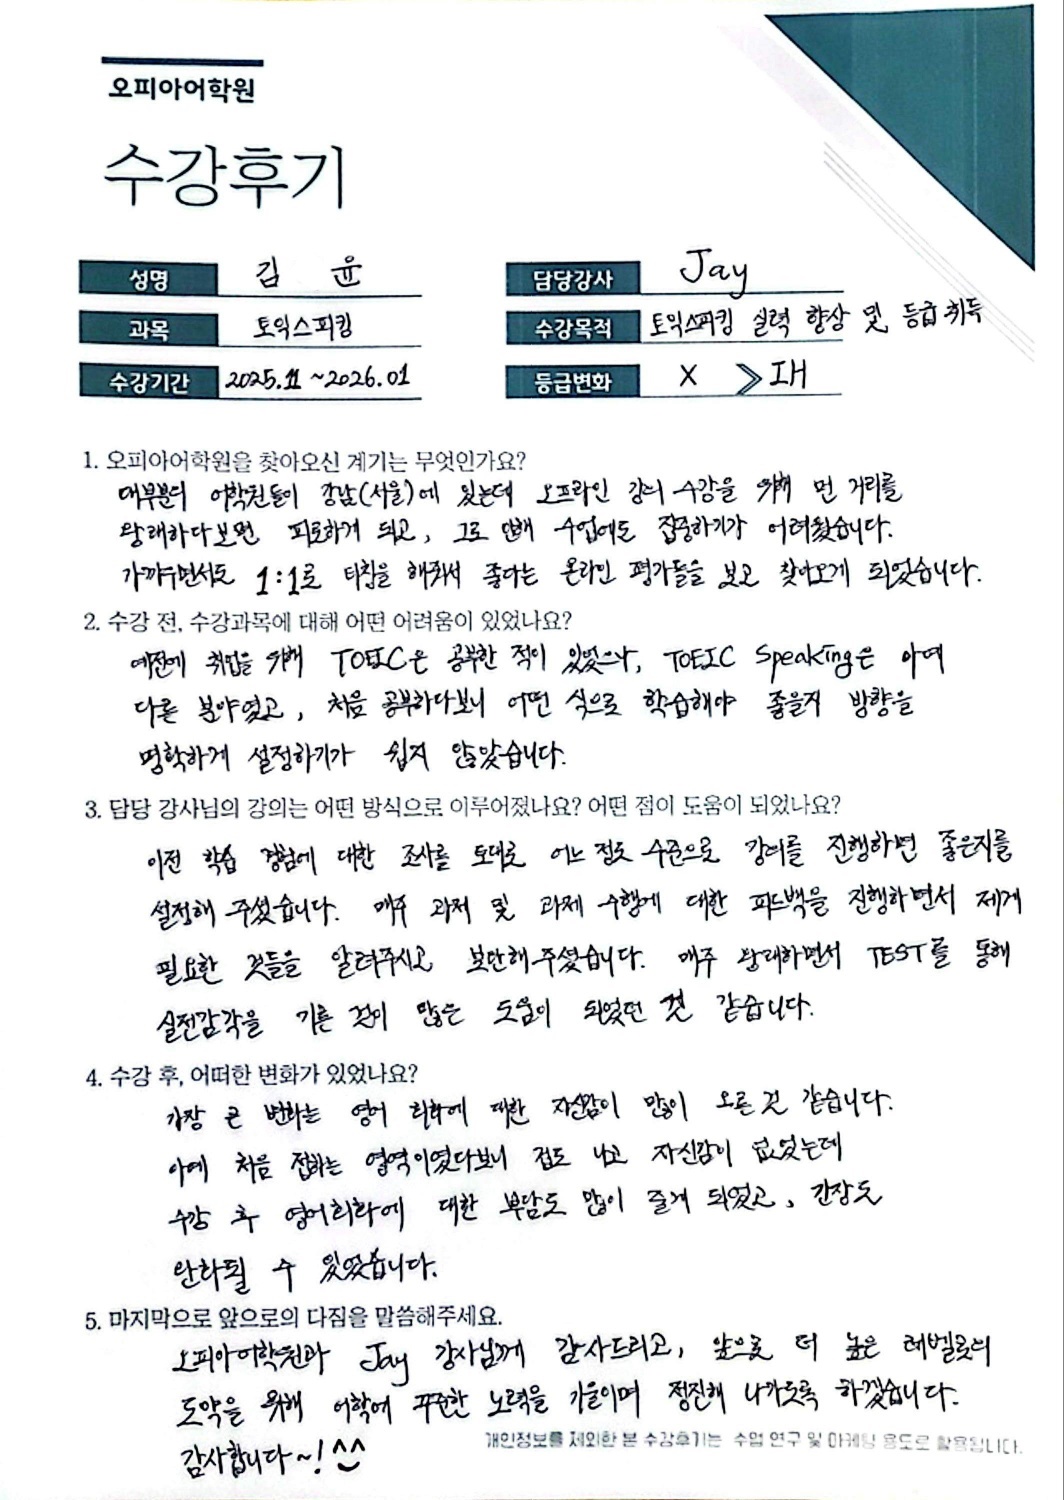 오피아어학원
수강후기
성명 김 윤 담당강사 Jay
과목 토익스피킹 수강목적 토익스피킹 실력 향상 및 등급 취득
수강기간 2025.11 ~2026.01 등급변화 X IH
1. 오피아어학원을 찾아오신 계기는 무엇인가요?
대부분의 어학원들이 강남(서울)에 있는데 오프라인 강의 수강을 위해 먼 거리를
왕래하다보면 피로하게 되고, 그로 인해 수업에도 집중하기가 어려웠습니다.
가까우면서도 1:1로 티칭을 해줘서 좋다는 온라인 평가들을 보고 찾아오게 되었습니다.
2. 수강 전, 수강과목에 대해 어떤 어려움이 있었나요?
예전에 취업을 위해 TOEIC은 공부한 적이 있었으나, TOEIC Speaking은 아예
다른 분야였고, 처음 공부하다보니 어떤 식으로 학습해야 좋을지 방향을
명확하게 설정하기가 쉽지 않았습니다.
3. 담당 강사님의 강의는 어떤 방식으로 이루어졌나요? 어떤 점이 도움이 되었나요?
이전 학습 경험에 대한 조사를 토대로 어느 정도 수준으로 강의를 진행하면 좋은지를
설정해 주셨습니다. 매주 과제 및 과제 수행에 대한 피드백을 진행하면서 제게
필요한 것들을 알려주시고 보완해주셨습니다. 매주 왕래하면서 TEST를 통해
실전감각을 기른 것이 많은 도움이 되었던 것 같습니다.
4. 수강 후, 어떠한 변화가 있었나요?
가장 큰 변화는 영어 회화에 대한 자신감이 많이 오른 것 같습니다.
아예 처음 접하는 영역이었다보니 겁도 나고 자신감이 없었는데
수강 후 영어회화에 대한 부담도 많이 줄게 되었고, 긴장도
완화될 수 있었습니다.
5. 마지막으로 앞으로의 다짐을 말씀해주세요.
오피아어학원과 Jay 강사님께 감사드리고, 앞으로 더 높은 레벨로의
도약을 위해 어학에 꾸준한 노력을 기울이며 정진해 나가도록 하겠습니다.
감사합니다~! ^^
개인정보를 제외한 본 수강후기는 수업 연구 및 마케팅 용도로 활용됩니다.